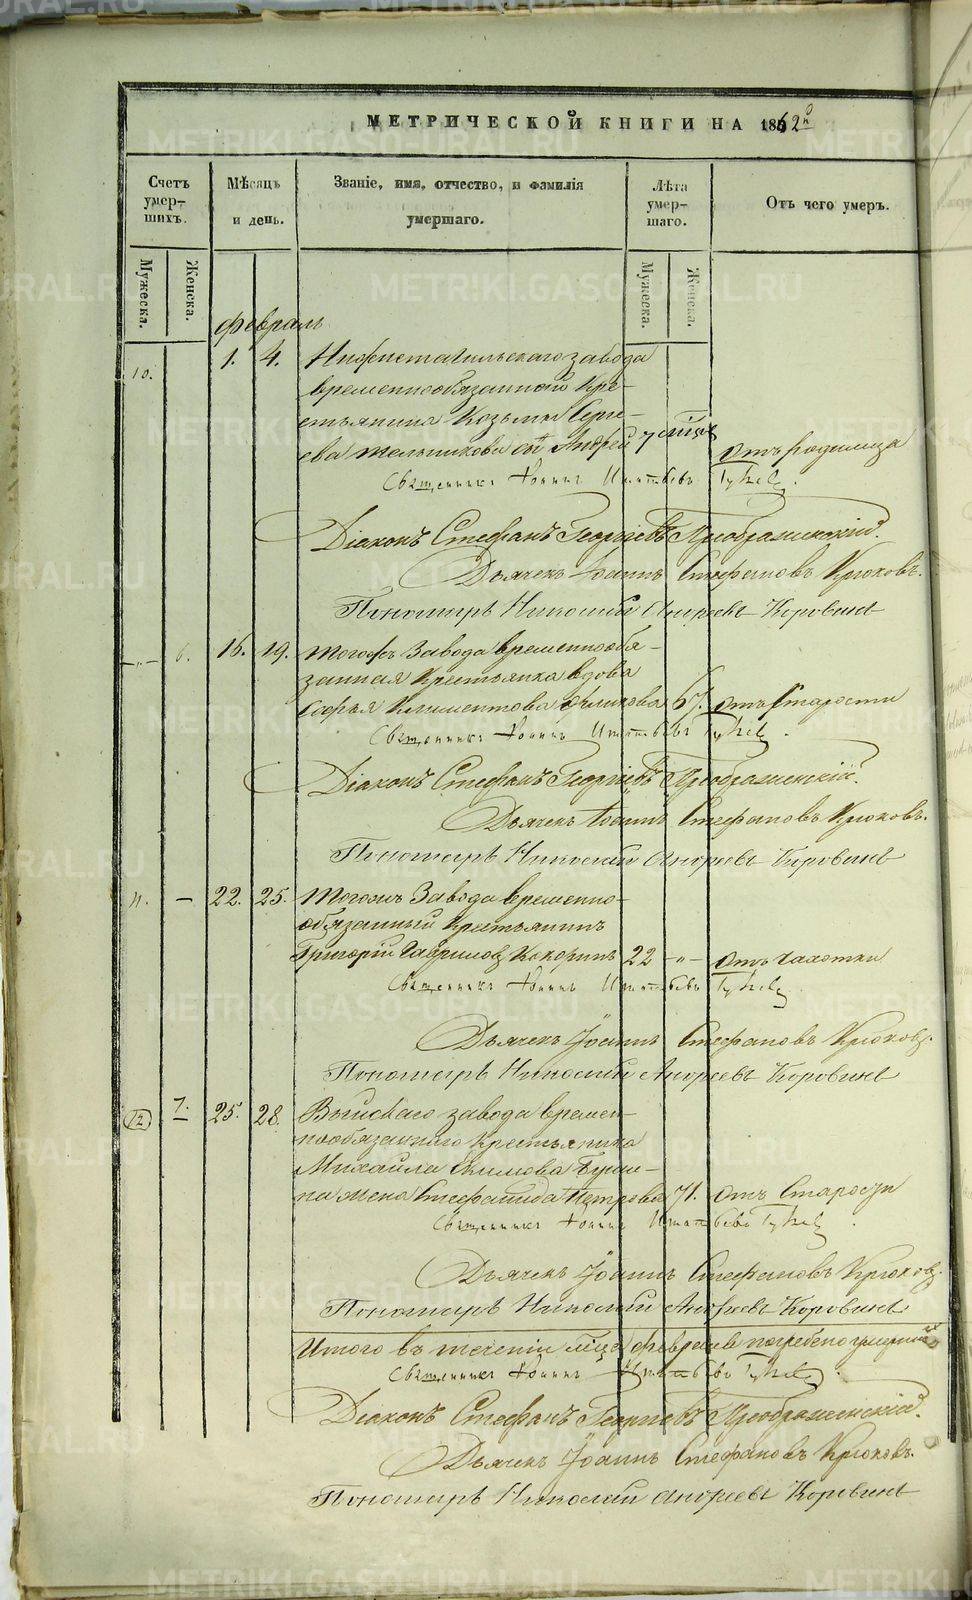 МЕТРИЧЕСКОЙ КНИГИ НА 1862й
Счетъ умершихъ.
Мѣсяцъ и день.
Званіе, имя, отчество, и фамилія умершаго.
Лѣта умершаго.
Отъ чего умеръ.
Мужеска.
Женска.
Мужеска.
Женска.
февраль
10. 1. 4. Нижнетагильскаго завода
временнообязанной кре-
стьянина Козьмы Серге-
ева Мельникова сы Андрей 7 отъ родимца
Священникъ Іоаннъ
Діаконъ Стефанъ Георгіевъ Преображенскій.
Дьячекъ Іоаннъ Стефановъ Крюковъ.
Пономарь Николай Андреевъ Коровинъ
—„— 6. 16. 19. Тогожъ Завода временнообя-
занная Крестьянка вдова
Софья Климентова 67. отъ Старости
Священникъ Іоаннъ
Діаконъ Стефанъ Георгіевъ Преображенскій.
Дьячекъ Іоаннъ Стефановъ Крюковъ.
Пономарь Николай Андреевъ Коровинъ
11. — 22. 25. Тогожъ Завода временно-
обязанный Крестьянинъ
Григорій Гавриловъ Кокоринъ 22 —„— Отъ Чахотки
Священникъ Іоаннъ
Дьячекъ Іоаннъ Стефановъ Крюковъ.
Пономарь Николай Андреевъ Коровинъ
12 7. 25. 28. Выйскаго завода времен-
нообязаннаго Крестьянина
Михайла Екимова
жена Стефанида Петрова 71. Отъ Старости
Священникъ Іоаннъ
Дьячекъ Іоаннъ Стефановъ Крюковъ.
Пономарь Николай Андреевъ Коровинъ
Итого въ теченіи мца февраля погребено умершихъ
Священникъ Іоаннъ
Діаконъ Стефанъ Георгіевъ Преображенскій.
Дьячекъ Іоаннъ Стефановъ Крюковъ.
Пономарь Николай Андреевъ Коровинъ
METRIKI.GASO-URAL.RU